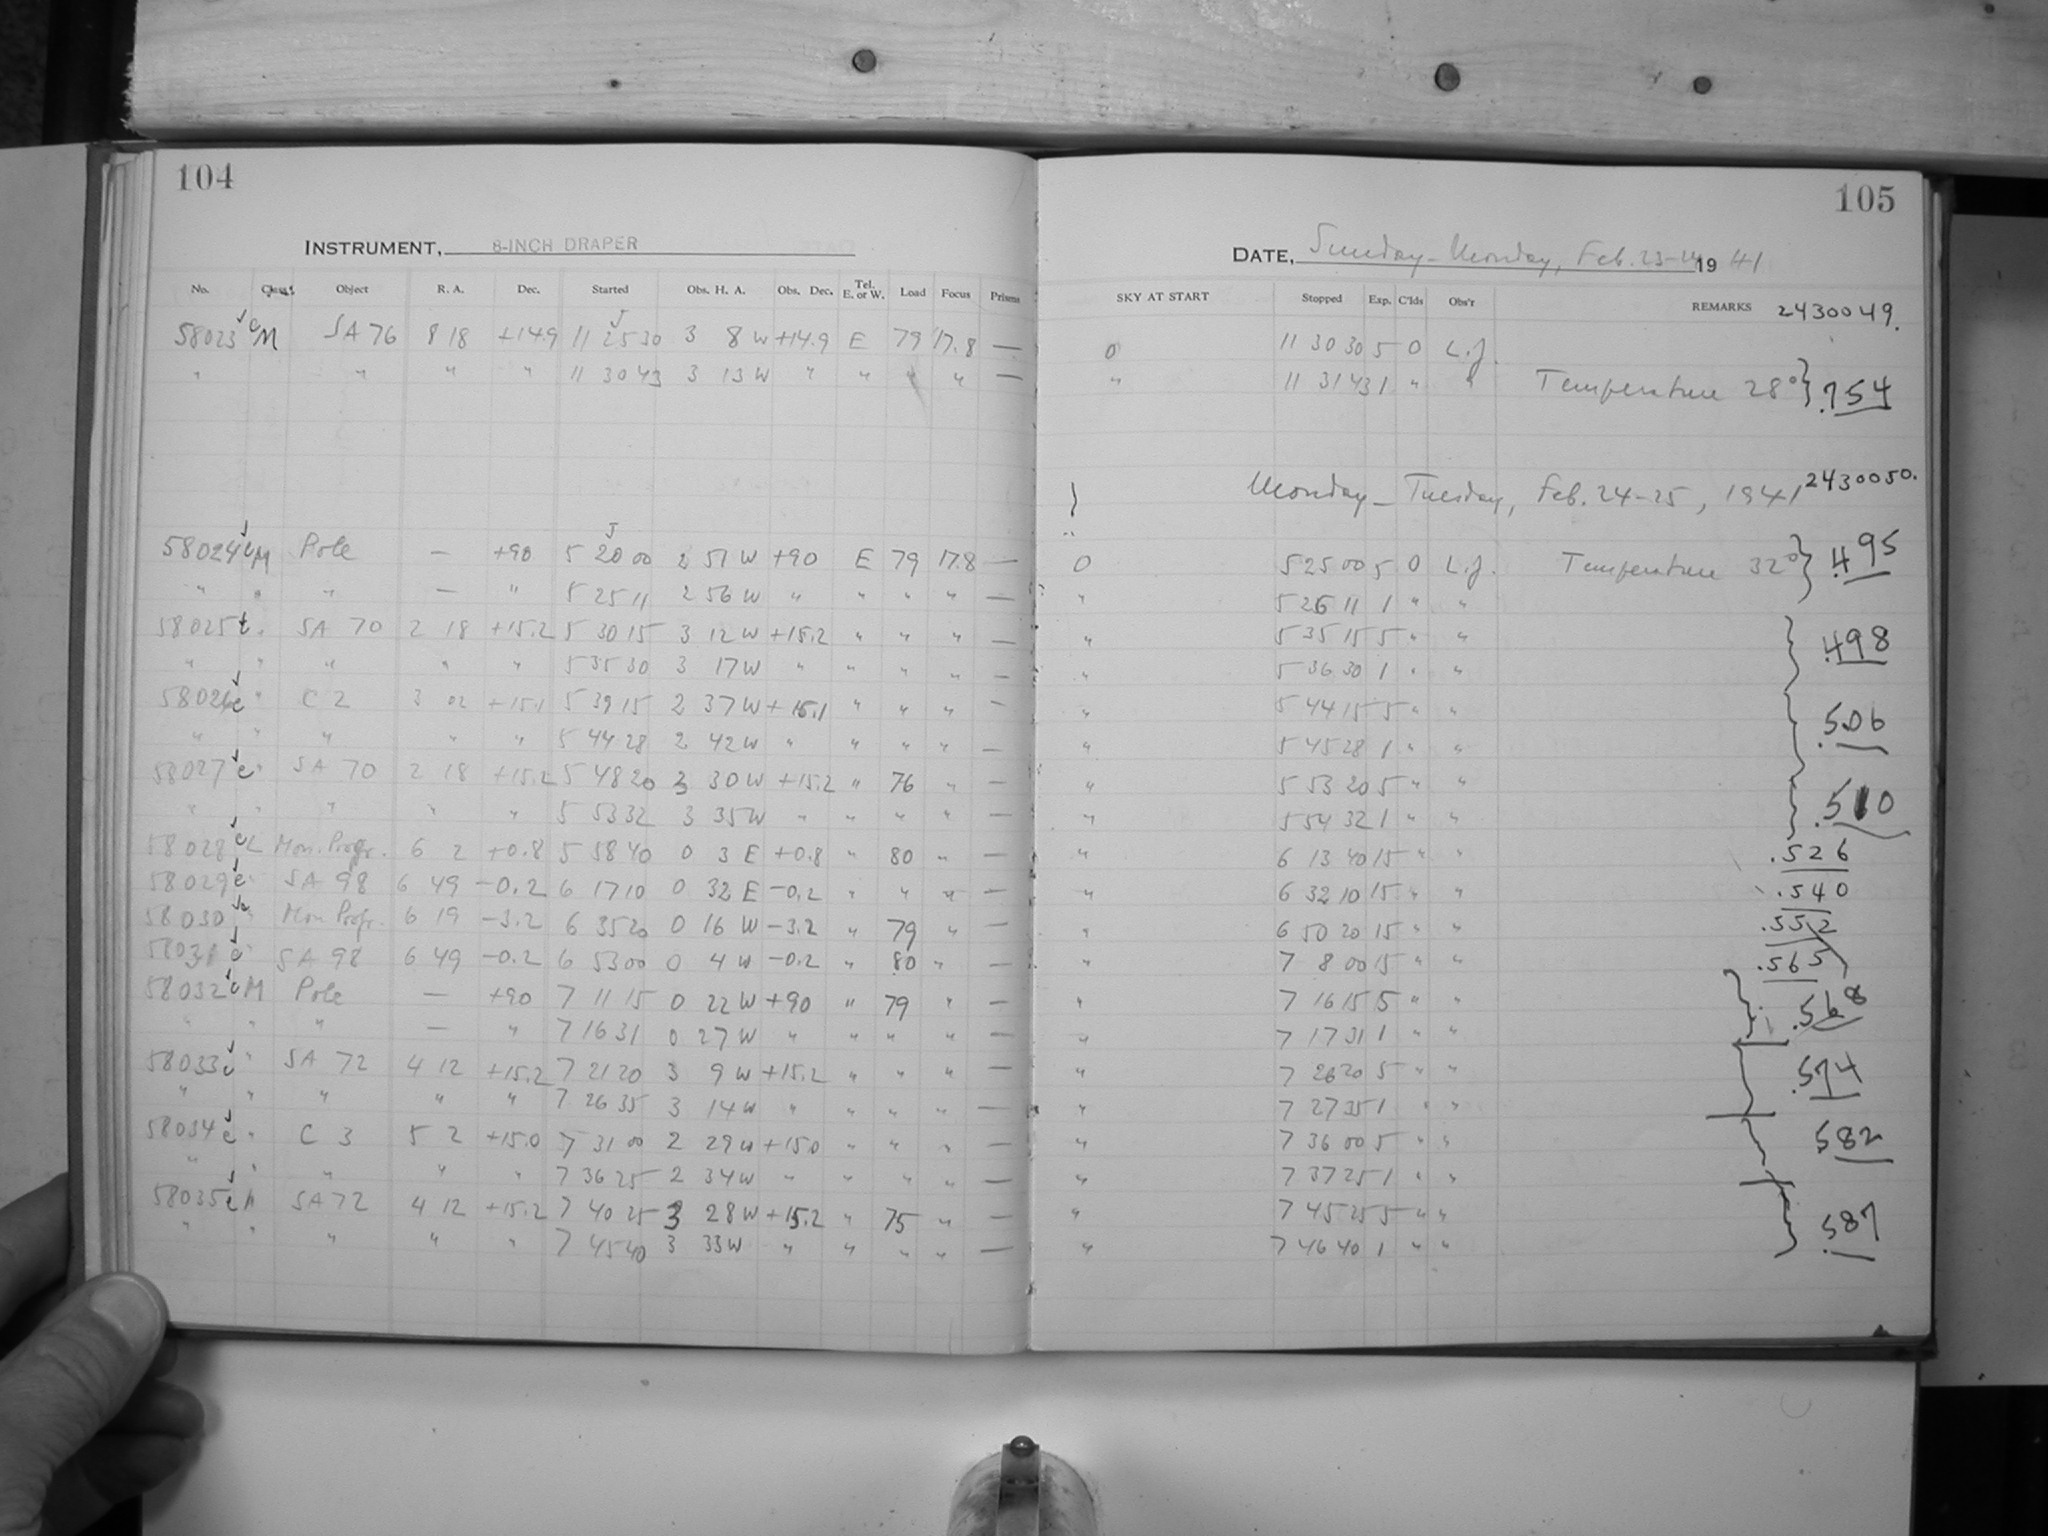 104
INSTRUMENT, 8-INCH DRAPER
No. Class Object R. A. Dec. Started Obs. H. A. Obs. Dec. Tel. E. or W. Load Focus Prisms
58023 c M SA 76 8 18 +14.9 11 25 30 3 8 W +14.9 E 79 17.8 —
" " " " 11 30 43 3 13 W " " " " —
58024 c M Pole — +90 5 20 00 2 51 W +90 E 79 17.8 —
" " " — " 5 25 11 2 56 W " " " " —
58025 " SA 70 2 18 +15.2 5 30 15 3 12 W +15.2 " " " —
" " " " " 5 35 30 3 17 W " " " " —
58026 c " C 2 3 02 +15.1 5 39 15 2 37 W +15.1 " " " —
" " " " " 5 44 28 2 42 W " " " " —
58027 c " SA 70 2 18 +15.2 5 48 20 3 30 W +15.2 " 76 " —
" " " " " 5 53 32 3 35 W " " " " —
58028 c L Mon. Progr. 6 2 +0.8 5 58 40 0 3 E +0.8 " 80 " —
58029 c " SA 98 6 49 -0.2 6 17 10 0 32 E -0.2 " " " —
58030 " Mon Progr. 6 19 -3.2 6 35 20 0 16 W -3.2 " 79 " —
58031 c " SA 98 6 49 -0.2 6 53 00 0 4 W -0.2 " 80 " —
58032 c M Pole — +90 7 11 15 0 22 W +90 " 79 " —
" " " — " 7 16 31 0 27 W " " " " —
58033 c " SA 72 4 12 +15.2 7 21 20 3 9 W +15.2 " " " —
" " " " " 7 26 35 3 14 W " " " " —
58034 c " C 3 5 2 +15.0 7 31 00 2 29 W +15.0 " " " —
" " " " " 7 36 25 2 34 W " " " " —
58035 c " SA 72 4 12 +15.2 7 40 25 3 28 W +15.2 " 75 " —
" " " " " 7 45 40 3 33 W " " " " —
105
DATE, Sunday - Monday, Feb. 23-24 1941
SKY AT START Stopped Exp. C'lds Obs'r REMARKS 2430049.
0 11 30 30 5 0 L.J.
" 11 31 43 1 " " Temperature 28° } .754
Monday - Tuesday, Feb. 24-25, 1941 2430050.
0 5 25 00 5 0 L.J. Temperature 32° } .495
" 5 26 11 1 " "
" 5 35 15 5 " " .498
" 5 36 30 1 " "
" 5 44 15 5 " " .506
" 5 45 28 1 " "
" 5 53 20 5 " " .510
" 5 54 32 1 " "
" 6 13 40 15 " " .526
" 6 32 10 15 " " .540
" 6 50 20 15 " " .552
" 7 8 00 15 " " .565
" 7 16 15 5 " " .568
" 7 17 31 1 " "
" 7 26 20 5 " " .574
" 7 27 35 1 " "
" 7 36 00 5 " " .582
" 7 37 25 1 " "
" 7 45 25 5 " " .587
" 7 46 40 1 " "